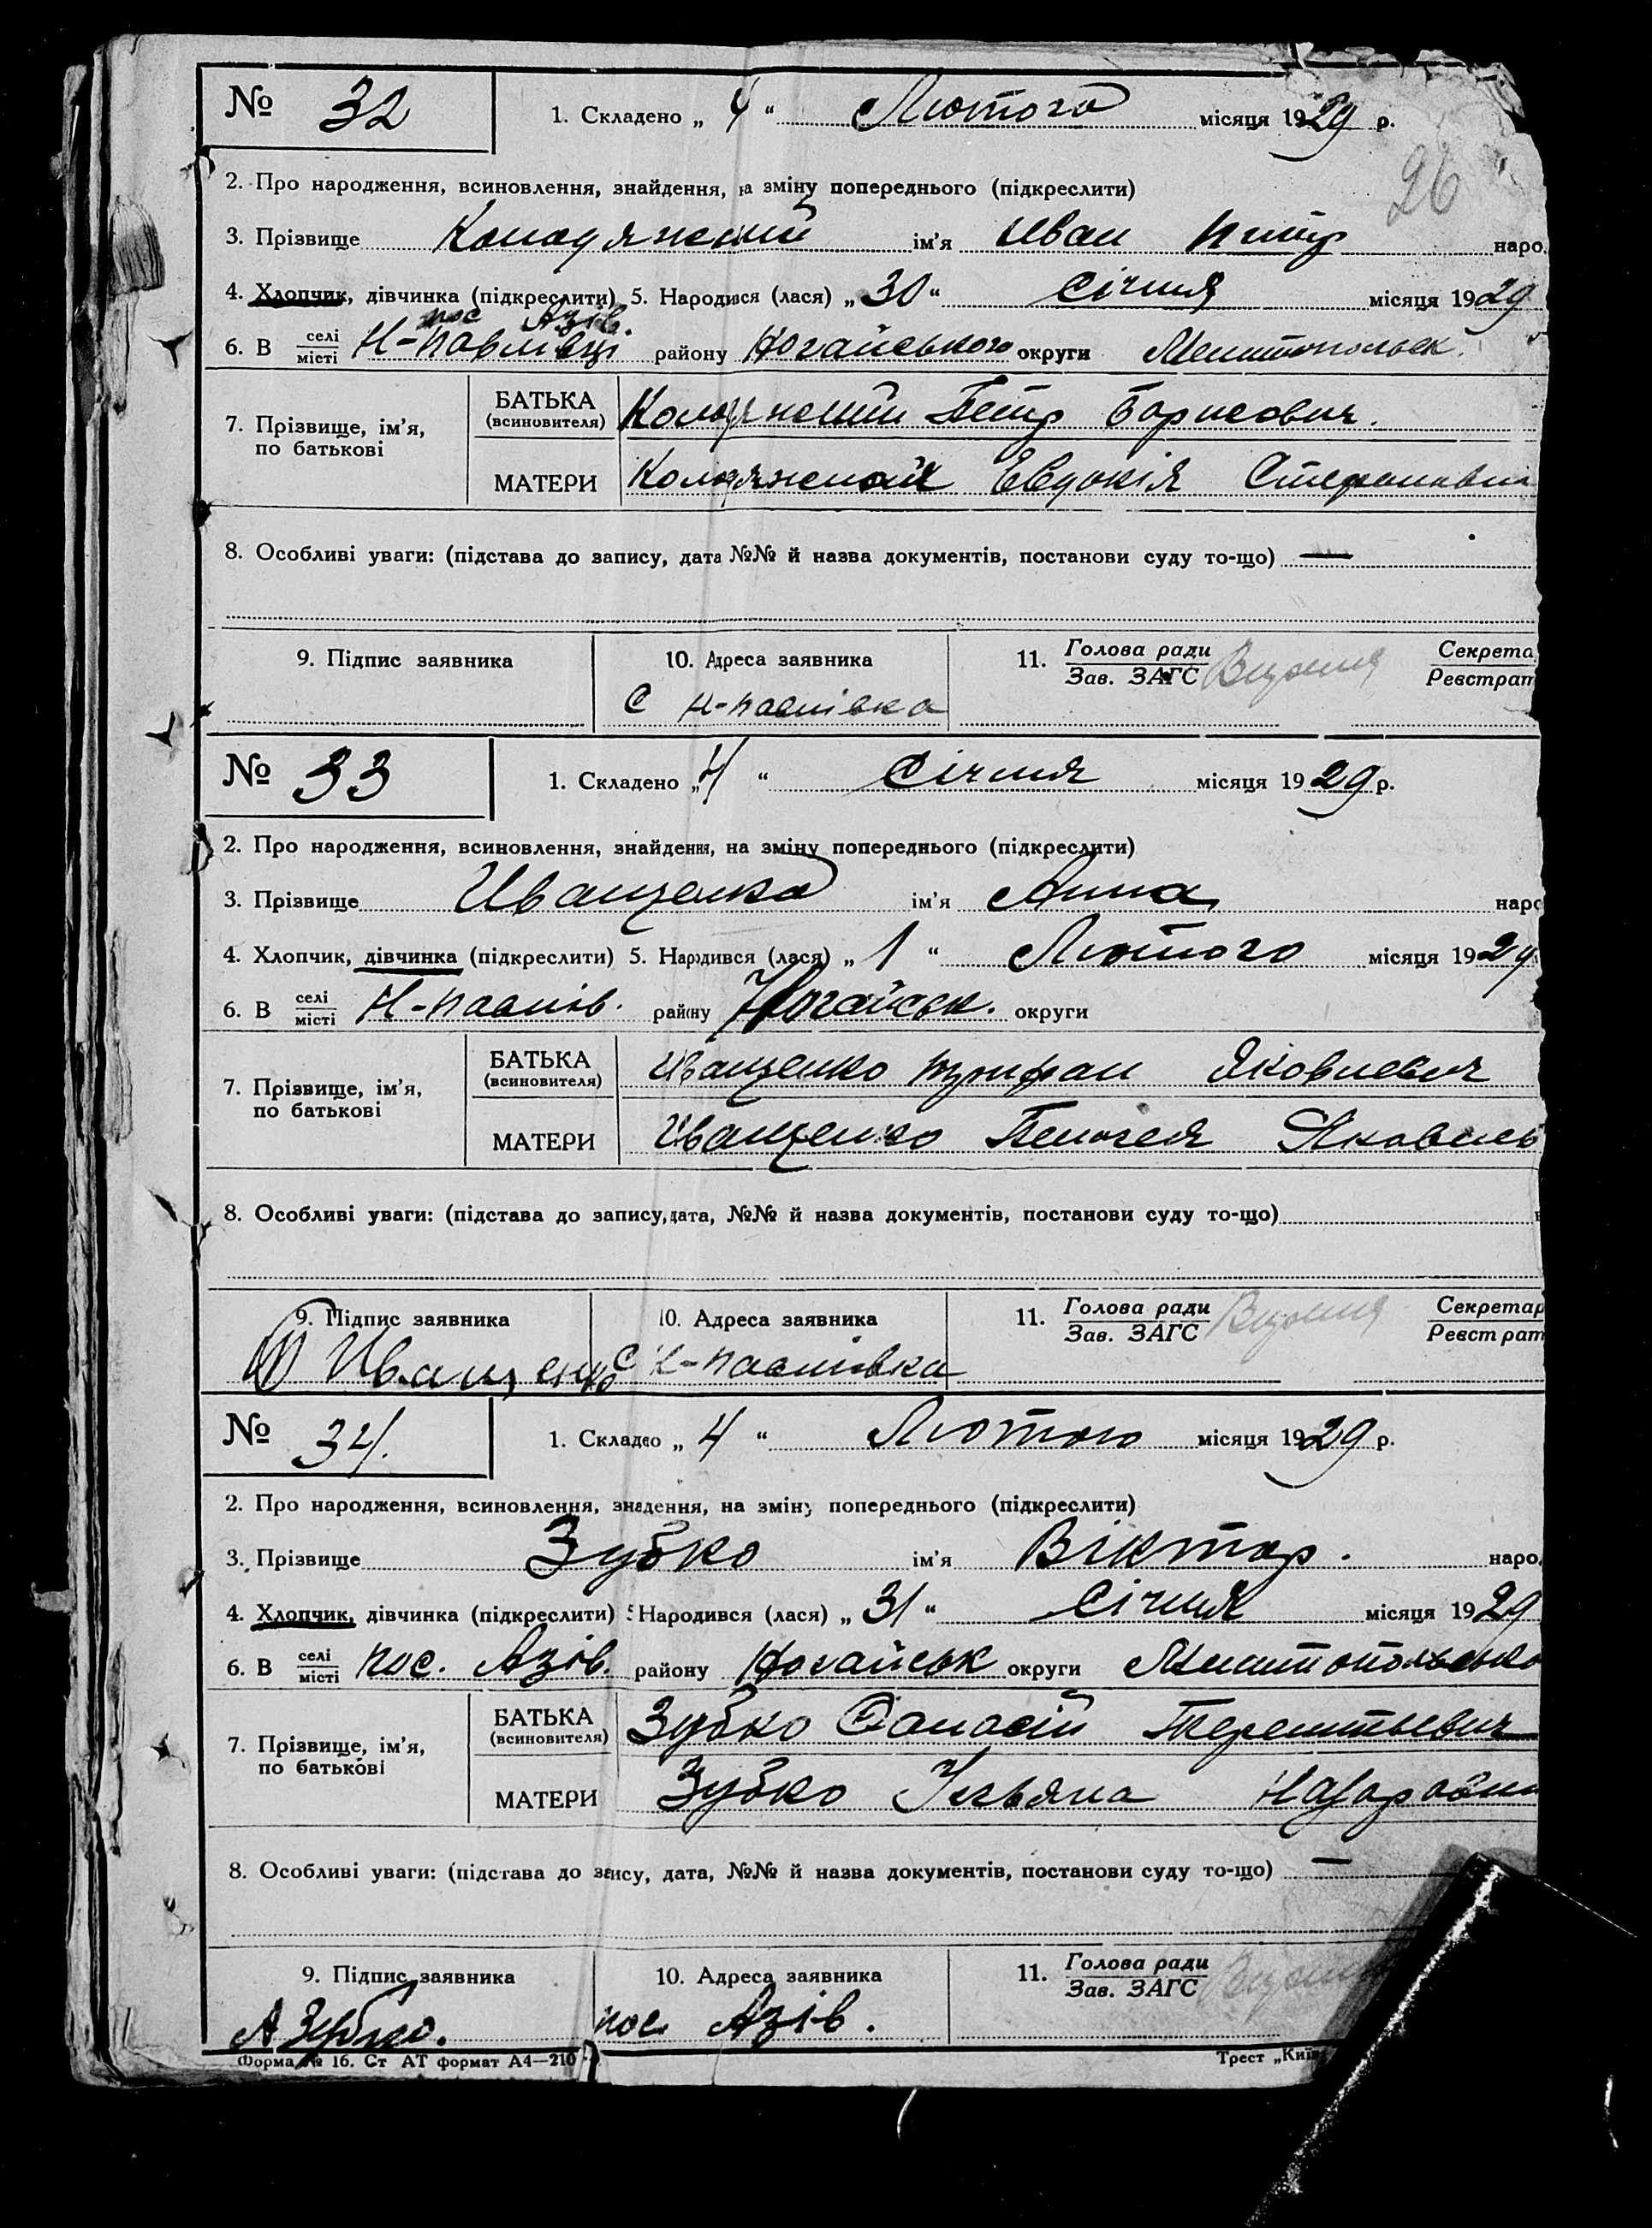 № 32 1. Складено „ 4 “ Лютого місяця 1929 р.
26
2. Про народження, всиновлення, знайдення, на зміну попереднього (підкреслити)
3. Прізвище ім'я Иван наро
4. Хлопчик, дівчинка (підкреслити) 5. Народився (лася) „ 30 “ Січня місяця 1929
пос Азів.
6. В селі/місті Н-Павлівці району Ногайського округи Мелитопольск.
7. Прізвище, ім'я, по батькові
БАТЬКА (всиновителя) Петр Борисович.
МАТЕРИ Евдокія
8. Особливі уваги: (підстава до запису, дата №№ й назва документів, постанови суду то-що) —
9. Підпис заявника 10. Адреса заявника 11. Голова ради/Зав. ЗАГС Секрета/Реєстрат
С Н-Павлівка
№ 33 1. Складено „ 4 “ Січня місяця 1929 р.
2. Про народження, всиновлення, знайдення, на зміну попереднього (підкреслити)
3. Прізвище Иващенко ім'я Анна наро
4. Хлопчик, дівчинка (підкреслити) 5. Народився (лася) „ 1 “ Лютого місяця 1929
6. В селі/місті Н-Павлів. району Ногайськ. округи
7. Прізвище, ім'я, по батькові
БАТЬКА (всиновителя) Иващенко Трифан Яковлевич
МАТЕРИ Иващенко Пелагея Яковлев
8. Особливі уваги: (підстава до запису, дата, №№ й назва документів, постанови суду то-що)
9. Підпис заявника 10. Адреса заявника 11. Голова ради/Зав. ЗАГС Секретар/Реєстрат
Иващенко С Н-Павлівка
№ 34. 1. Складено „ 4 “ Лютого місяця 1929 р.
2. Про народження, всиновлення, знадення, на зміну попереднього (підкреслити)
3. Прізвище Зубко ім'я Віктор. наро
4. Хлопчик, дівчинка (підкреслити) 5 Народився (лася) „ 31 “ Січня місяця 1929
6. В селі/місті пос. Азів. району Ногайськ округи Мелитопольсько
7. Прізвище, ім'я, по батькові
БАТЬКА (всиновителя) Зубко Терентьевич
МАТЕРИ Зубко Ульяна Назаровн
8. Особливі уваги: (підстава до запису, дата, №№ й назва документів, постанови суду то-що) —
9. Підпис заявника 10. Адреса заявника 11. Голова ради/Зав. ЗАГС
А Зубко. пос. Азів.
Форма № 16. Ст АТ формат А4—210 Трест „Київ